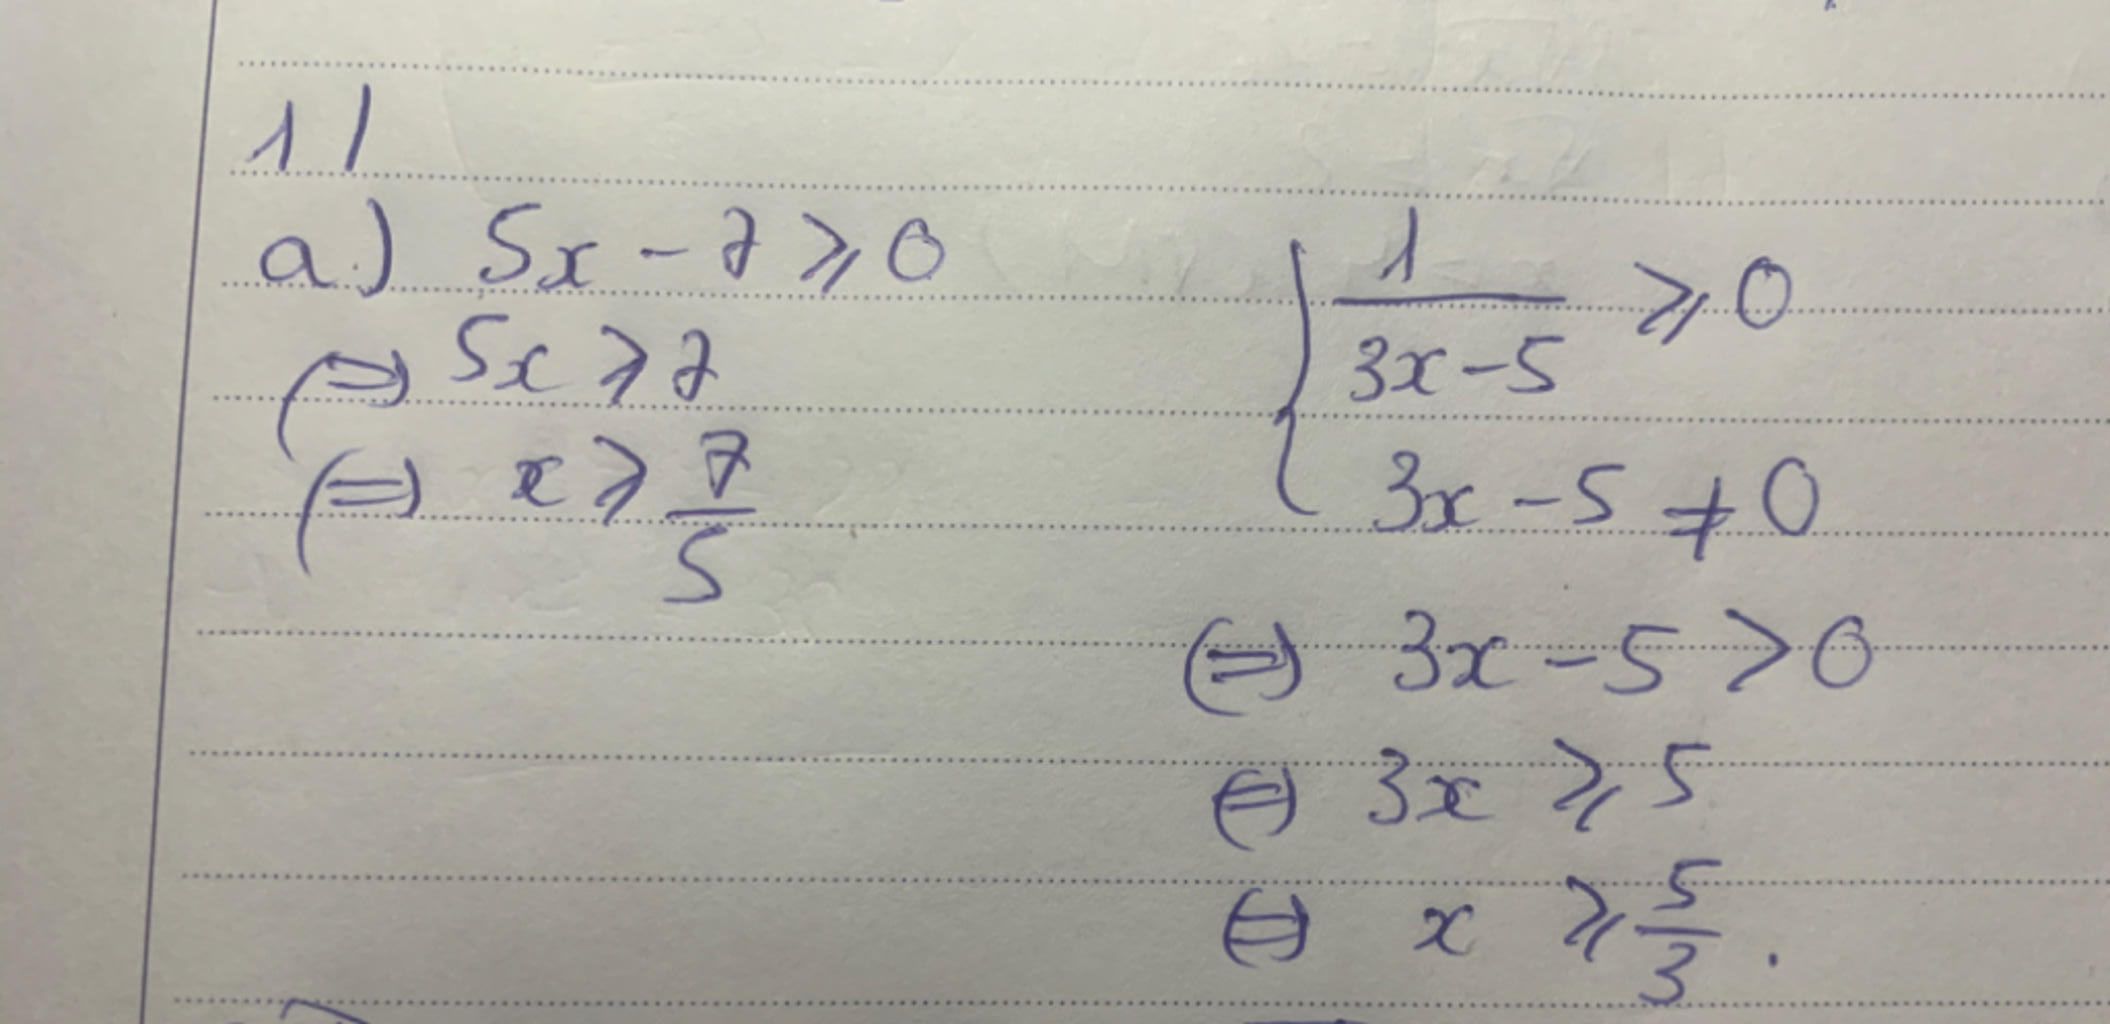 1/
a) 5x - 7 ⩾ 0
⇔ 5x ⩾ 7
⇔ x ⩾ 7/5
{ 1/(3x-5) ⩾ 0
3x - 5 ≠ 0
⇔ 3x - 5 > 0
⇔ 3x ⩾ 5
⇔ x ⩾ 5/3.